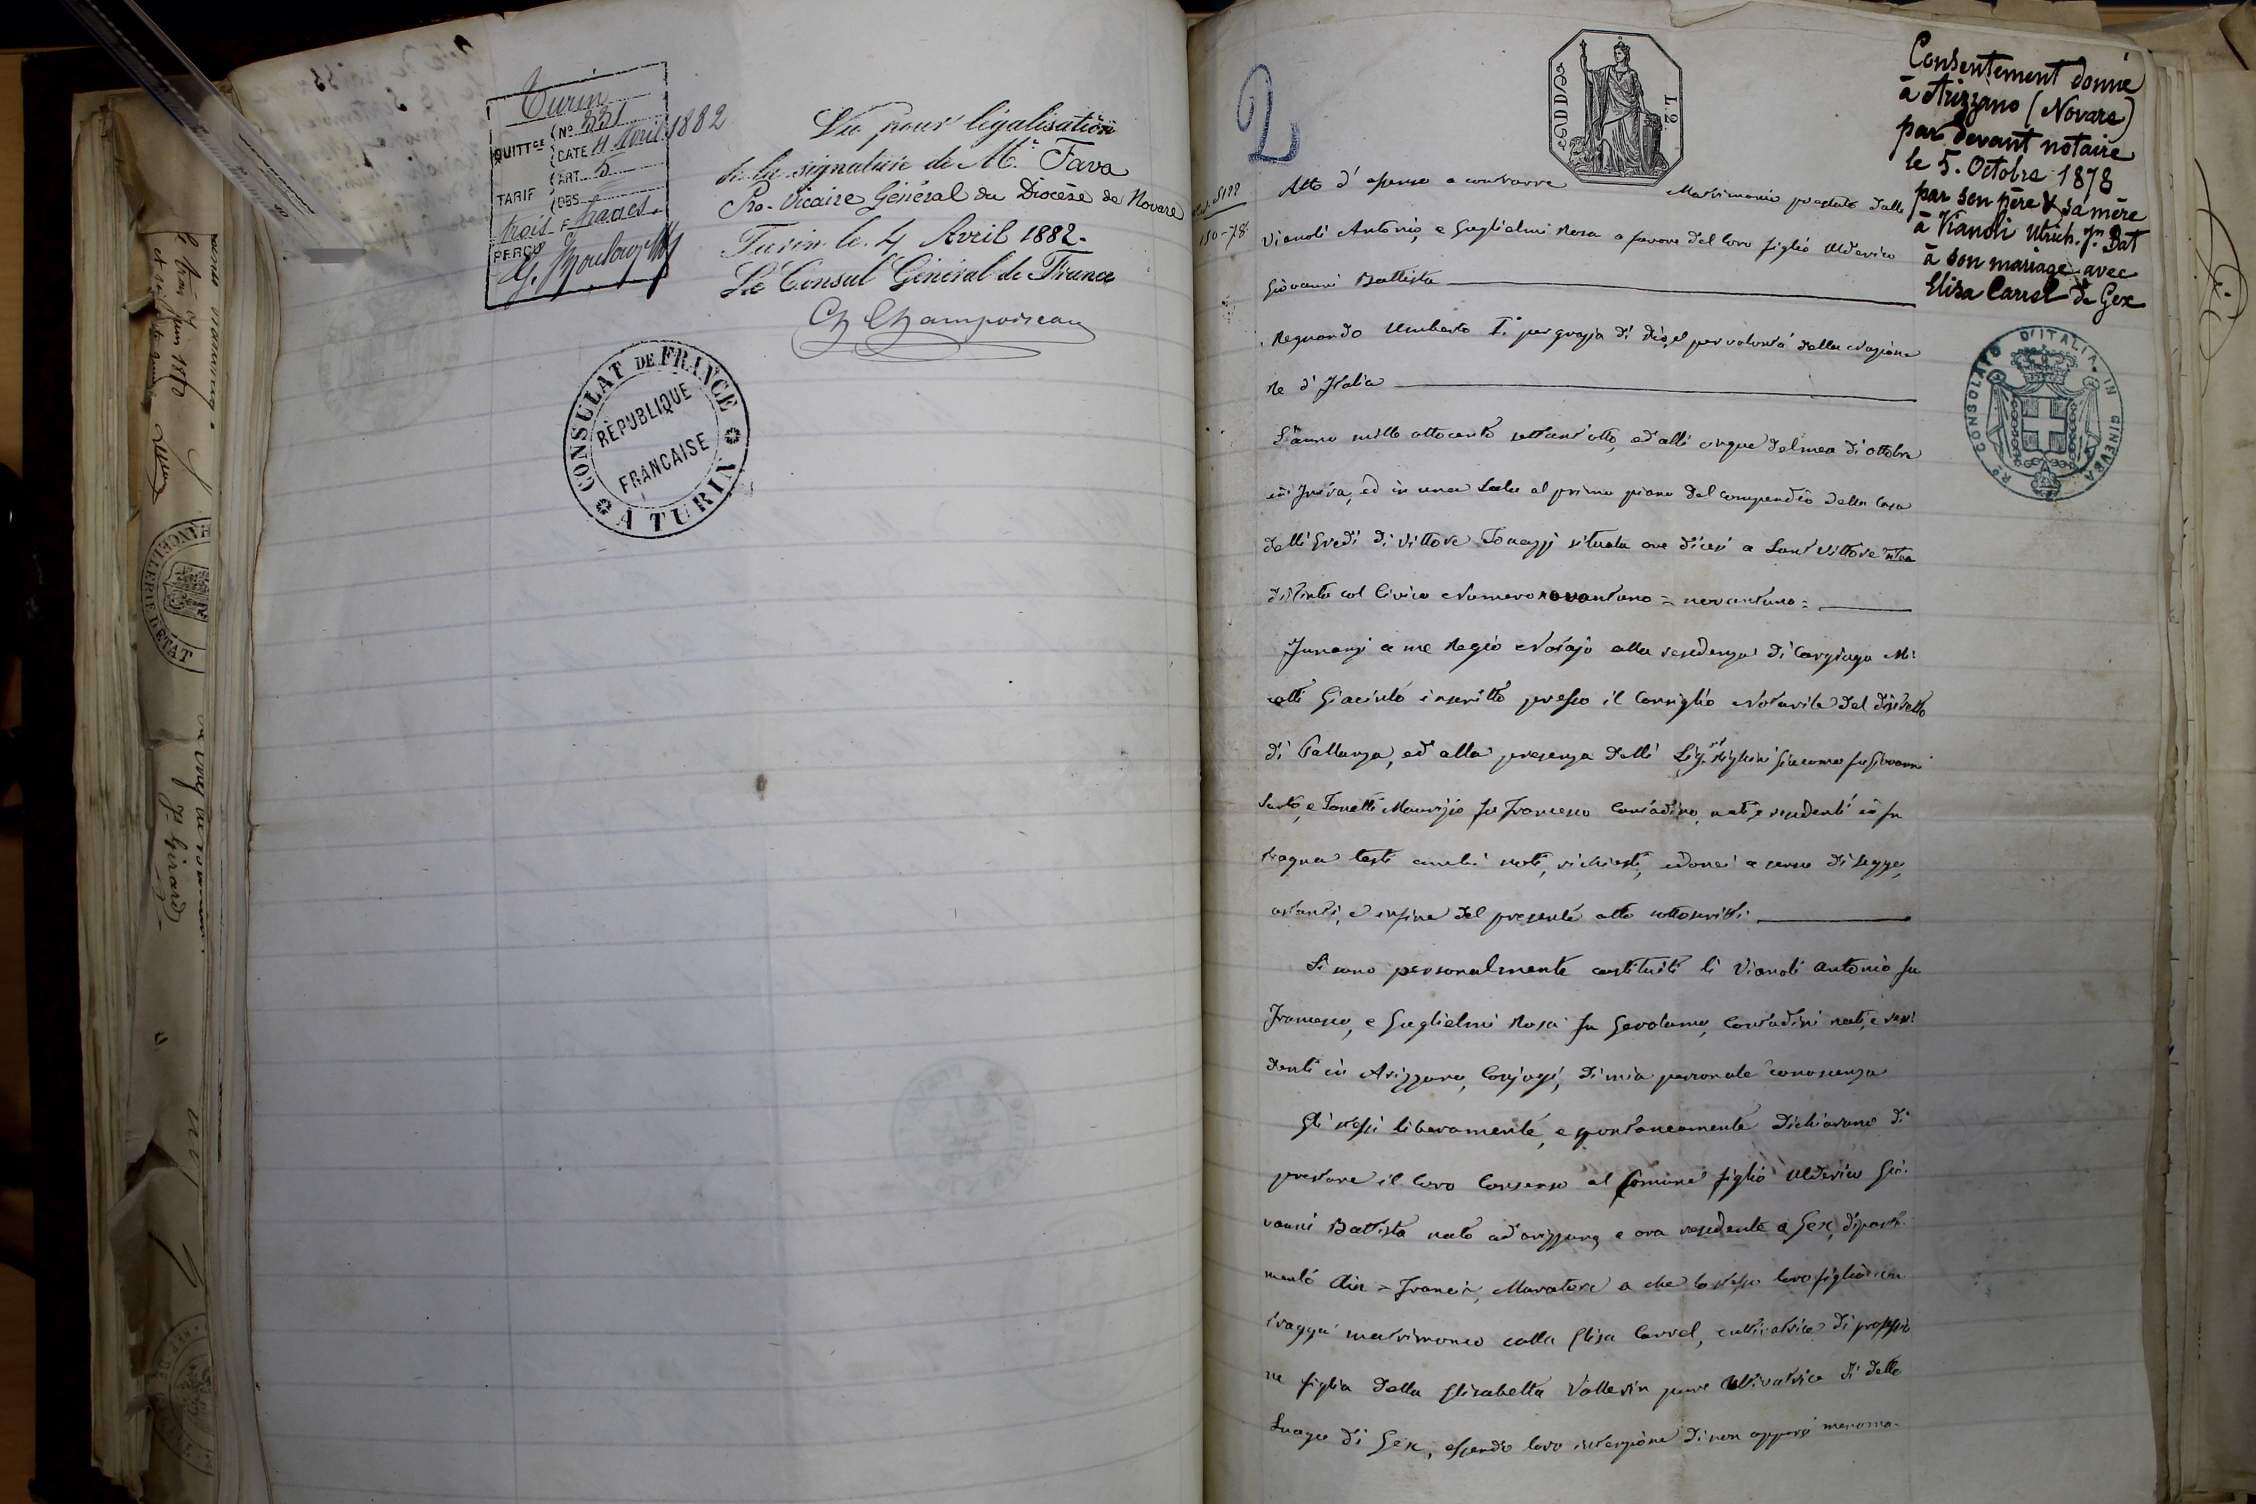 Turin
QUITTCE No 231
DATE 4 Avril 1882
ART. 5
TARIF OBS
trois F francs.
PERÇU
Vu pour légalisation
de la signature de Mr. Fava
Pro-Vicaire Général du Diocèse de Novare
Turin le 4 Avril 1882.
Le Consul Général de France
Ch Champoiseau
CONSULAT DE FRANCE
RÉPUBLIQUE
FRANÇAISE
A TURIN
le trois juin 1880
CHANCELLERIE D'ÉTAT
Jn. Girard
2
L. 2.
Consentement donné
à Arizzano (Novare)
par devant notaire
le 5. Octobre 1878
par son père & sa mère
à Vianoli Ulrich. Jn. Bat
à son mariage avec
Eliza Carrel de Gex
Ro CONSOLATO D'ITALIA IN GINEVRA
150-78
Atto d'assenso a contrarre Matrimonio prestato dalli
Vianoli Antonio, e Guglielmi Rosa a favore del loro figlio Ulderico
Giovanni Battista
Regnando Umberto I.o per grazia di Dio, e per volontà della Nazione
Re d'Italia
L'anno mille ottocento settant'otto, ed alli cinque del mese di ottobre
in Intra, ed in una Sala al primo piano del compendio della Casa
delli Eredi di Vittore Tonazzi situata ove dicesi a Sant Vittore Intra
distinta col Civico Numero novantuno = novantuno =
Innanzi a me Regio Notajo alla residenza di Cargiago Mi-
Giacinto inscritto presso il Consiglio Notarile del distretto
di Pallanza, ed alla presenza delli Sigri Righini Giacomo fu Giovanni
Sarto, e Tonetti Maurizio fu Francesco Contadino, nati e residenti in
tragna testi amibi noti, richiesti, idonei a senso di Legge,
astanti, e infine del presente atto sottoscritti
Si sono personalmente costituiti li Vianoli Antonio fu
Francesco, e Guglielmi Rosa fu Gerolamo, Contadini nati, e resi
denti in Arizzano, Conjugi, di mia personale conoscenza
Gli stessi liberamente, e spontaneamente dichiarano di
prestare il loro Consenso al Comune figlio Ulderico Gio-
vanni Battista nato ad Arizzano, e ora residente a Gex, diparti-
mento Ain = Francia, Muratore a che lo stesso loro figlio con
tragga matrimonio colla Elisa Carrel, cultivatrice di professio
ne figlia della Elisabetta Vallerin pure Coltivatrice di detto
Luogo di Gex, essendo loro intenzione di non opporsi menoma-